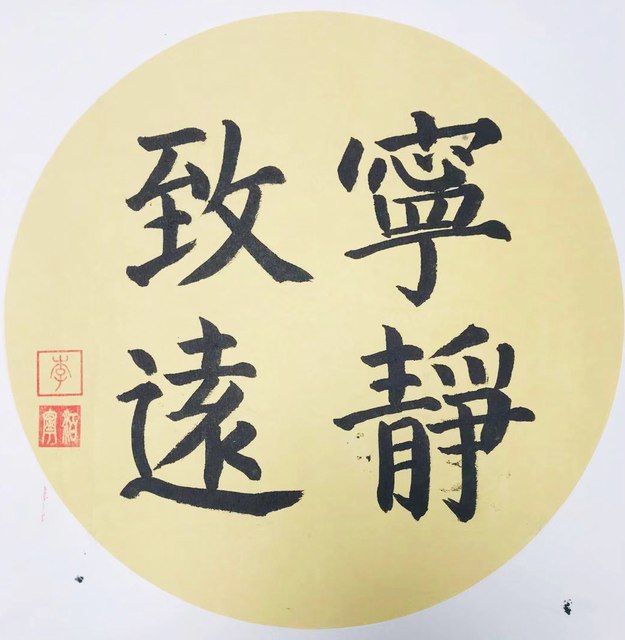 寧靜
致遠
李